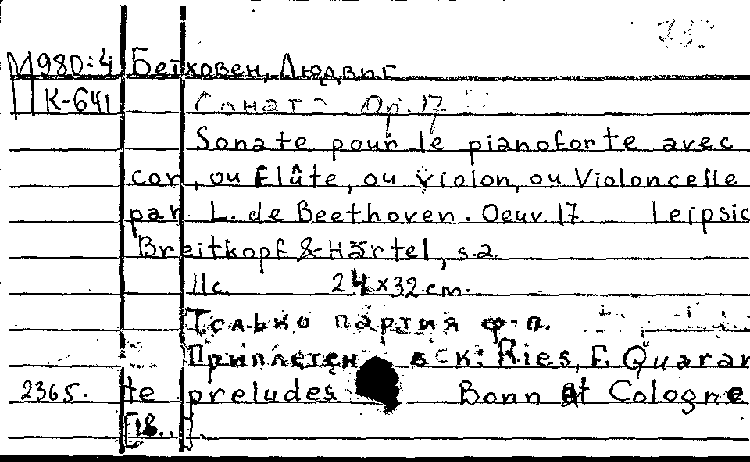 М980:4 Бетховен, Людвиг
К-641 Соната Op. 17
Sonate pour le pianoforte avec
cor, ou Flûte, ou Violon, ou Violoncelle
par L. de Beethoven. Oeuv. 17 Leipsic
Breitkopf & Härtel, s.a.
11c. 24x32 cm.
Только партия ф-п.
Приплетен в ск: Ries, F. Quaran
2365. te preludes Bonn et Cologne
[18..].